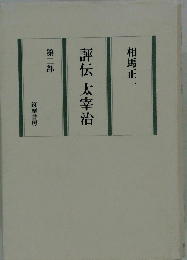 相馬正一
評伝 太宰治
第二部
筑摩書房